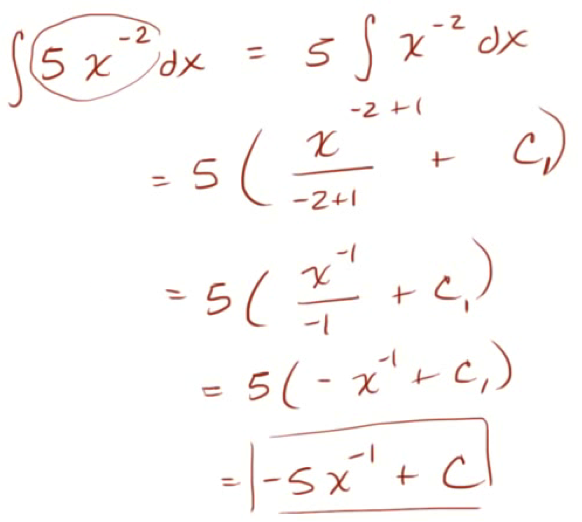 ∫5x⁻²dx = 5∫x⁻²dx
= 5(x⁻²⁺¹/(-2+1) + C₁)
= 5(x⁻¹/-1 + C₁)
= 5(-x⁻¹ + C₁)
= -5x⁻¹ + C